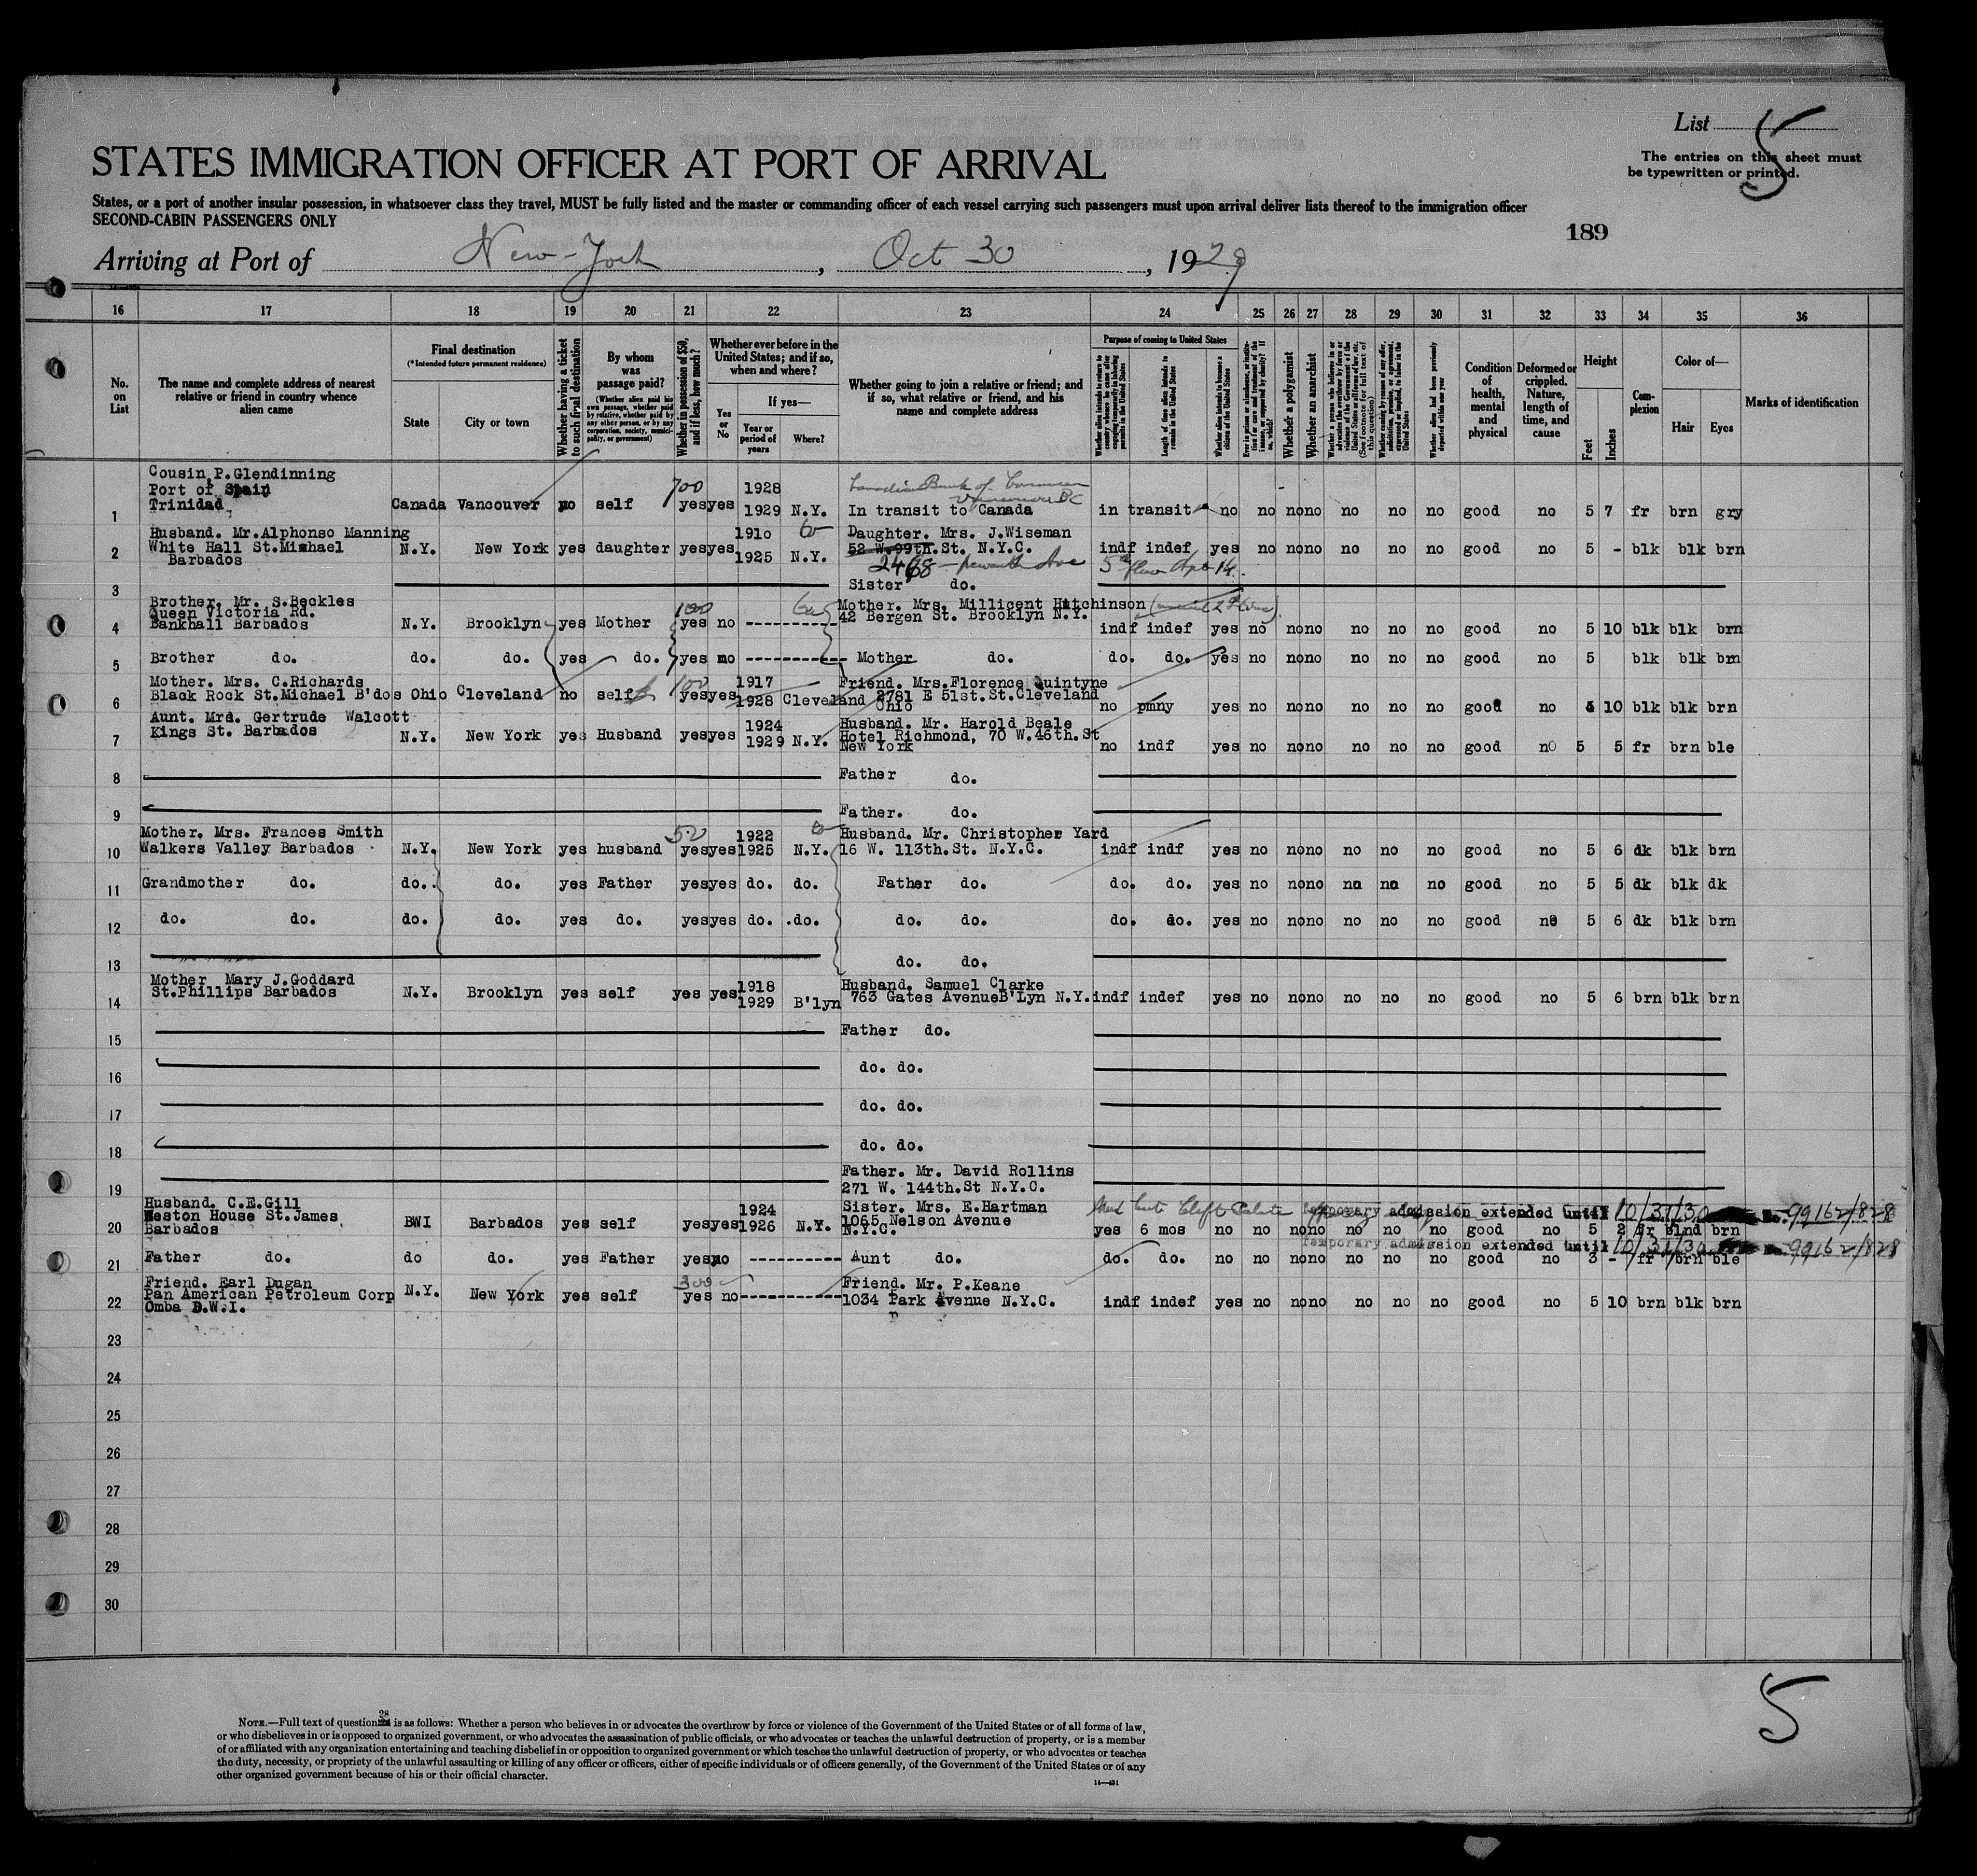 List 5
The entries on this sheet must
be typewritten or printed.
STATES IMMIGRATION OFFICER AT PORT OF ARRIVAL
States, or a port of another insular possession, in whatsoever class they travel, MUST be fully listed and the master or commanding officer of each vessel carrying such passengers must upon arrival deliver lists thereof to the immigration officer
SECOND-CABIN PASSENGERS ONLY
189
Arriving at Port of New-York, Oct 30, 1929
16 17 18 19 20 21 22 23 24 25 26 27 28 29 30 31 32 33 34 35 36
No. on List
The name and complete address of nearest relative or friend in country whence alien came
Final destination
(*Intended future permanent residence)
State
City or town
Whether having a ticket to such final destination
By whom was passage paid?
(Whether alien paid his own passage, whether paid by relative, whether paid by any other person, or by any corporation, society, municipality, or government)
Whether in possession of $50, and if less, how much?
Whether ever before in the United States; and if so, when and where?
Yes or No
If yes—
Year or period of years
Where?
Whether going to join a relative or friend; and if so, what relative or friend, and his name and complete address
Purpose of coming to United States
Length of time alien intends to remain in the United States
Whether alien intends to become a citizen of the United States
Whether a polygamist
Whether an anarchist
Whether alien had been previously deported within one year
Condition of health, mental and physical
Deformed or crippled. Nature, length of time, and cause
Height
Feet
Inches
Complexion
Color of—
Hair
Eyes
Marks of identification
Cousin P. Glendinning
Port of Spain 700 1928 Canadian Bank of Commerce
Trinidad Vancouver BC
1 Canada Vancouver no self yes yes 1929 N.Y. In transit to Canada in transit no no no no no no no good no 5 7 fr brn gry
Husband. Mr. Alphonso Manning 1910 Daughter. Mrs. J. Wiseman
2 White Hall St. Michael N.Y. New York yes daughter yes yes 1925 N.Y. 52 W. 99th. St. N.Y.C. indf indef yes no no no no no no good no 5 - blk blk brn
Barbados 2468 - Seventh Ave 5th floor Apt 14.
3 Sister do.
Brother. Mr. S. Beckles 100 Mother. Mrs. Millicent Hutchinson
Queen Victoria Rd. 42 Bergen St. Brooklyn N.Y.
4 Bankhall Barbados N.Y. Brooklyn yes Mother yes no indf indef yes no no no no no no good no 5 10 blk blk brn
5 Brother do. do. do. yes do. yes no Mother do. do. do. yes no no no no no no good no 5 blk blk brn
Mother. Mrs. C. Richards 100 1917 Friend. Mrs. Florence Quintyne
6 Black Rock St. Michael B'dos Ohio Cleveland no self yes yes 1928 Cleveland 2781 E 51st. St. Cleveland
Ohio no pmny yes no no no no no no good no 10 blk blk brn
Aunt. Mrs. Gertrude Walcott 1924 Husband. Mr. Harold Beale
7 Kings St. Barbados N.Y. New York yes Husband yes yes 1929 N.Y. Hotel Richmond, 70 W. 46th. St
New York no indf yes no no no no no no good no 5 5 fr brn ble
8 Father do.
9 Father. do.
Mother. Mrs. Frances Smith 50 1922 Husband. Mr. Christopher Yard
10 Walkers Valley Barbados N.Y. New York yes husband yes yes 1925 N.Y. 16 W. 113th. St. N.Y.C. indf indf yes no no no no no no good no 5 6 dk blk brn
11 Grandmother do. do. do. yes Father yes yes do. do. Father do. do. do. yes no no no no no no good no 5 5 dk blk dk
12 do. do. do. do. yes do. yes yes do. do. do. do. do. do. yes no no no no no no good no 5 6 dk blk brn
13 do. do.
Mother Mary J. Goddard 1918 Husband. Samuel Clarke
14 St. Phillips Barbados N.Y. Brooklyn yes self yes yes 1929 B'lyn 763 Gates Avenue B'Lyn N.Y. indf indef yes no no no no no no good no 5 6 brn blk brn
15 Father do.
16 do. do.
17 do. do.
18 do. do.
Father. Mr. David Rollins
19 271 W. 144th. St N.Y.C.
Husband. C.E. Gill 1924 Sister. Mrs. E. Hartman Temporary admission extended until 10/31/30 99162/828
20 Weston House St. James BWI Barbados yes self yes yes 1926 N.Y. 1065 Nelson Avenue
Barbados N.Y.C. yes 6 mos no no no no no no no good no 5 2 fr blnd brn
Temporary admission extended until 10/31/30 99162/828
21 Father do. do do. yes Father yes no Aunt do. do. do. no no no no no no no good no 3 - fr brn ble
Friend. Earl Dugan 300 Friend. Mr. P. Keane
22 Pan American Petroleum Corp N.Y. New York yes self yes no 1034 Park Avenue N.Y.C. indf indef yes no no no no no no good no 5 10 brn blk brn
Omba D.W.I.
23
24
25
26
27
28
29
30
5
NOTE.—Full text of question 28 is as follows: Whether a person who believes in or advocates the overthrow by force or violence of the Government of the United States or of all forms of law,
or who disbelieves in or is opposed to organized government, or who advocates the assassination of public officials, or who advocates or teaches the unlawful destruction of property, or is a member
of or affiliated with any organization entertaining and teaching disbelief in or opposition to organized government or which teaches the unlawful destruction of property, or who advocates or teaches
the duty, necessity, or propriety of the unlawful assaulting or killing of any officer or officers, either of specific individuals or of officers generally, of the Government of the United States or of any
other organized government because of his or their official character.
14—431